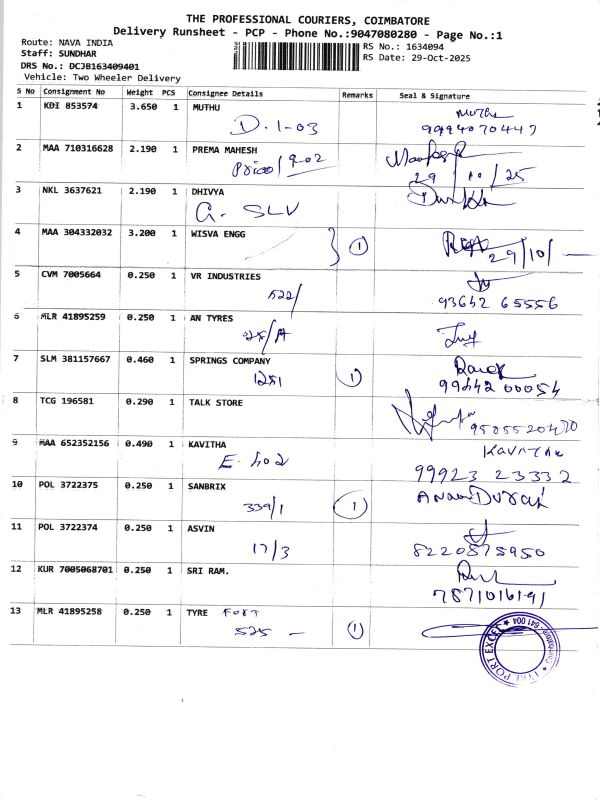 THE PROFESSIONAL COURIERS, COIMBATORE
Delivery Runsheet - PCP - Phone No.:9047080280 - Page No.:1
Route: NAVA INDIA
Staff: SUNDHAR
DRS No.: DCJB163409401
Vehicle: Two Wheeler Delivery
RS No.: 1634094
RS Date: 29-Oct-2025
S No Consignment No Weight PCS Consignee Details Remarks Seal & Signature
1 KDI 853574 3.650 1 MUTHU
D.1-03
9994070447
2 MAA 710316628 2.190 1 PREMA MAHESH
9-02
29/10/25
3 NKL 3637621 2.190 1 DHIVYA
G. SLV
4 MAA 304332032 3.200 1 WISVA ENGG
1 29/10/
5 CVM 7005664 0.250 1 VR INDUSTRIES
522/
93642 65556
6 MLR 41895259 0.250 1 AN TYRES
7 SLM 381157667 0.460 1 SPRINGS COMPANY
1281 1
99442 00054
8 TCG 196581 0.290 1 TALK STORE
9 MAA 652352156 0.490 1 KAVITHA
Kavitha
E. 502
99923 23332
10 POL 3722375 0.250 1 SANBRIX
339/1 1
11 POL 3722374 0.250 1 ASVIN
17/3
8220875950
12 KUR 7005068701 0.250 1 SRI RAM.
7871016191
13 MLR 41895258 0.250 1 TYRE FORT
525 - 1